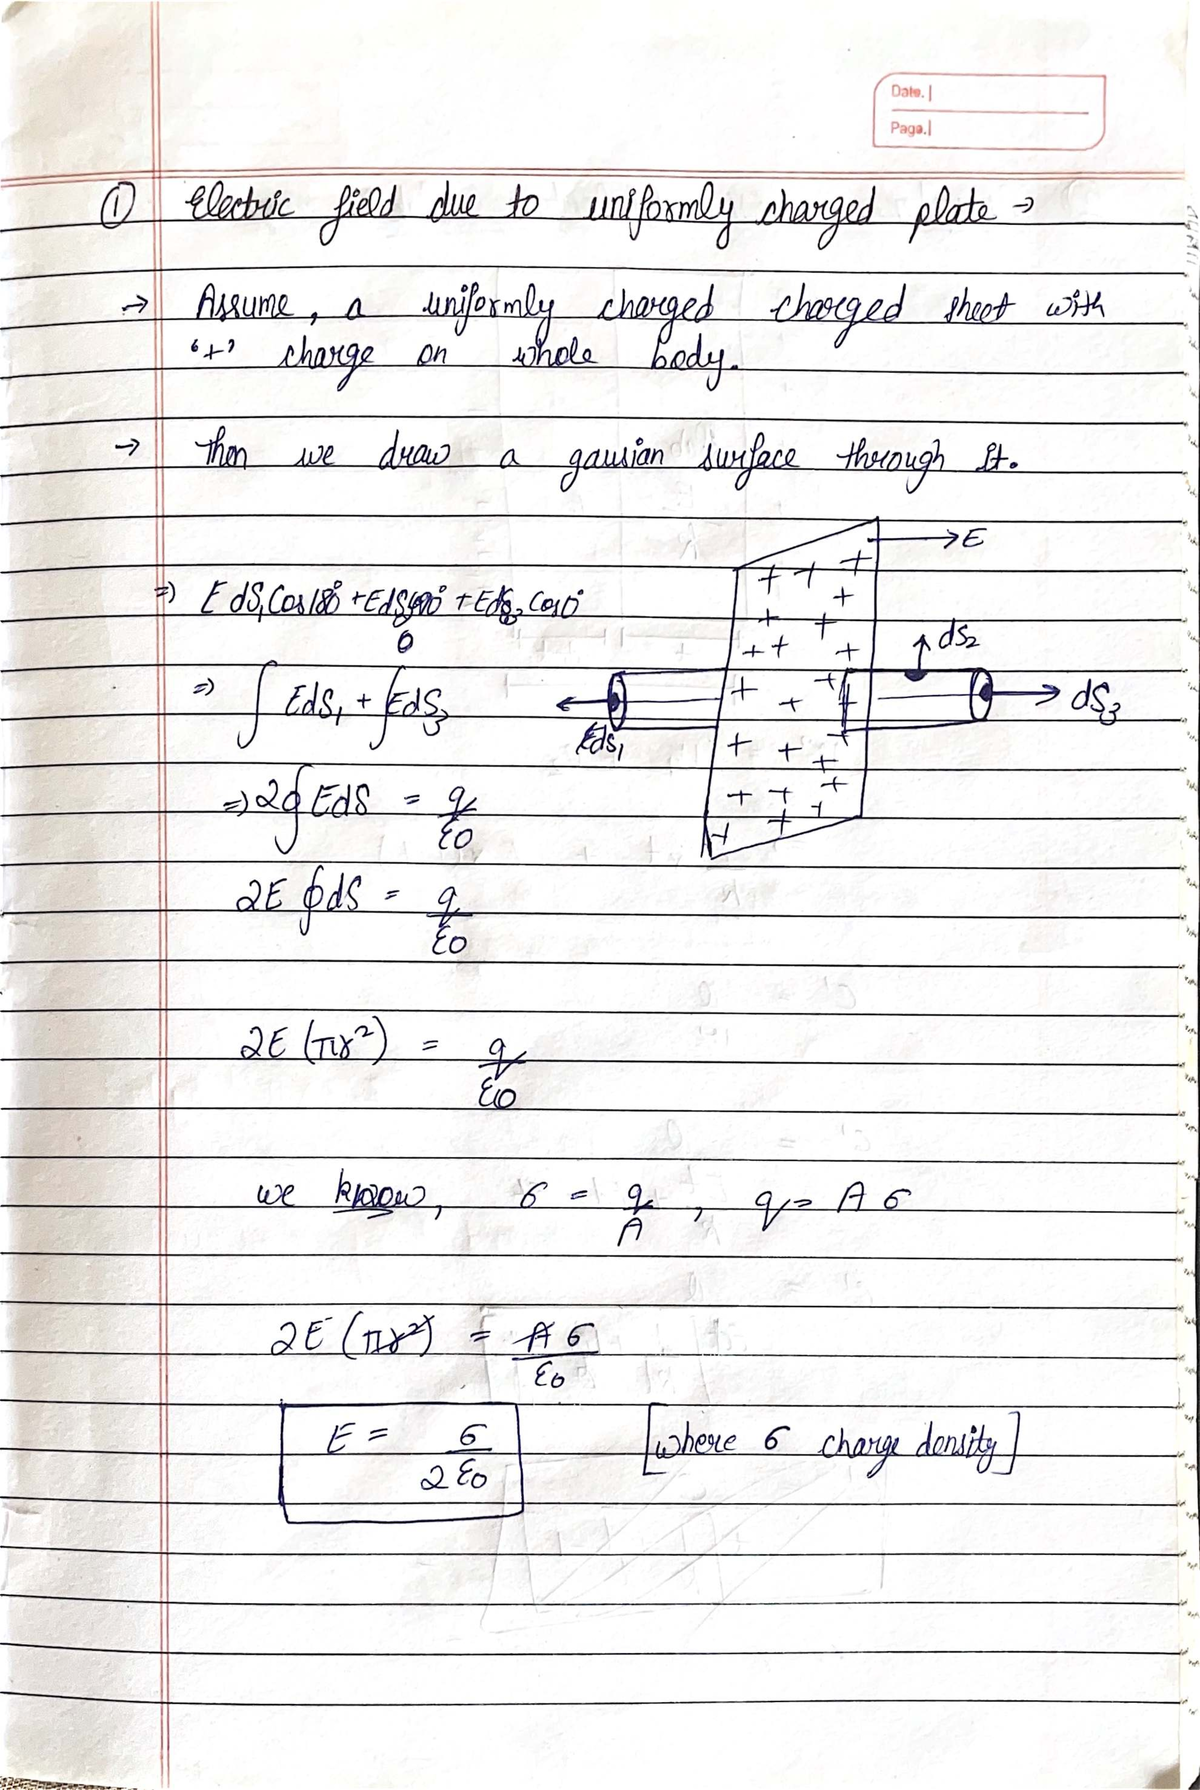 Date.
Page.
① Electric field due to uniformly charged plate →
→ Assume, a uniformly charged charged sheet with
'+' charge on whole body.
→ Then we draw a gausian surface through it.
→ E
⇒ E dS₁ Cos180° + EdS₂ Cos90° + EdS₃ Cos0°
0
dS₂
⇒ ∫ EdS₁ + ∫EdS₃
EdS₁
dS₃
⇒ 2∮ EdS = q/ε0
2E ∮dS = q/ε0
2E (πr²) = q/ε0
we know, σ = q/A , q = A σ
2E (πr²) = A σ/ε0
E = σ/2ε0 [where σ charge density]